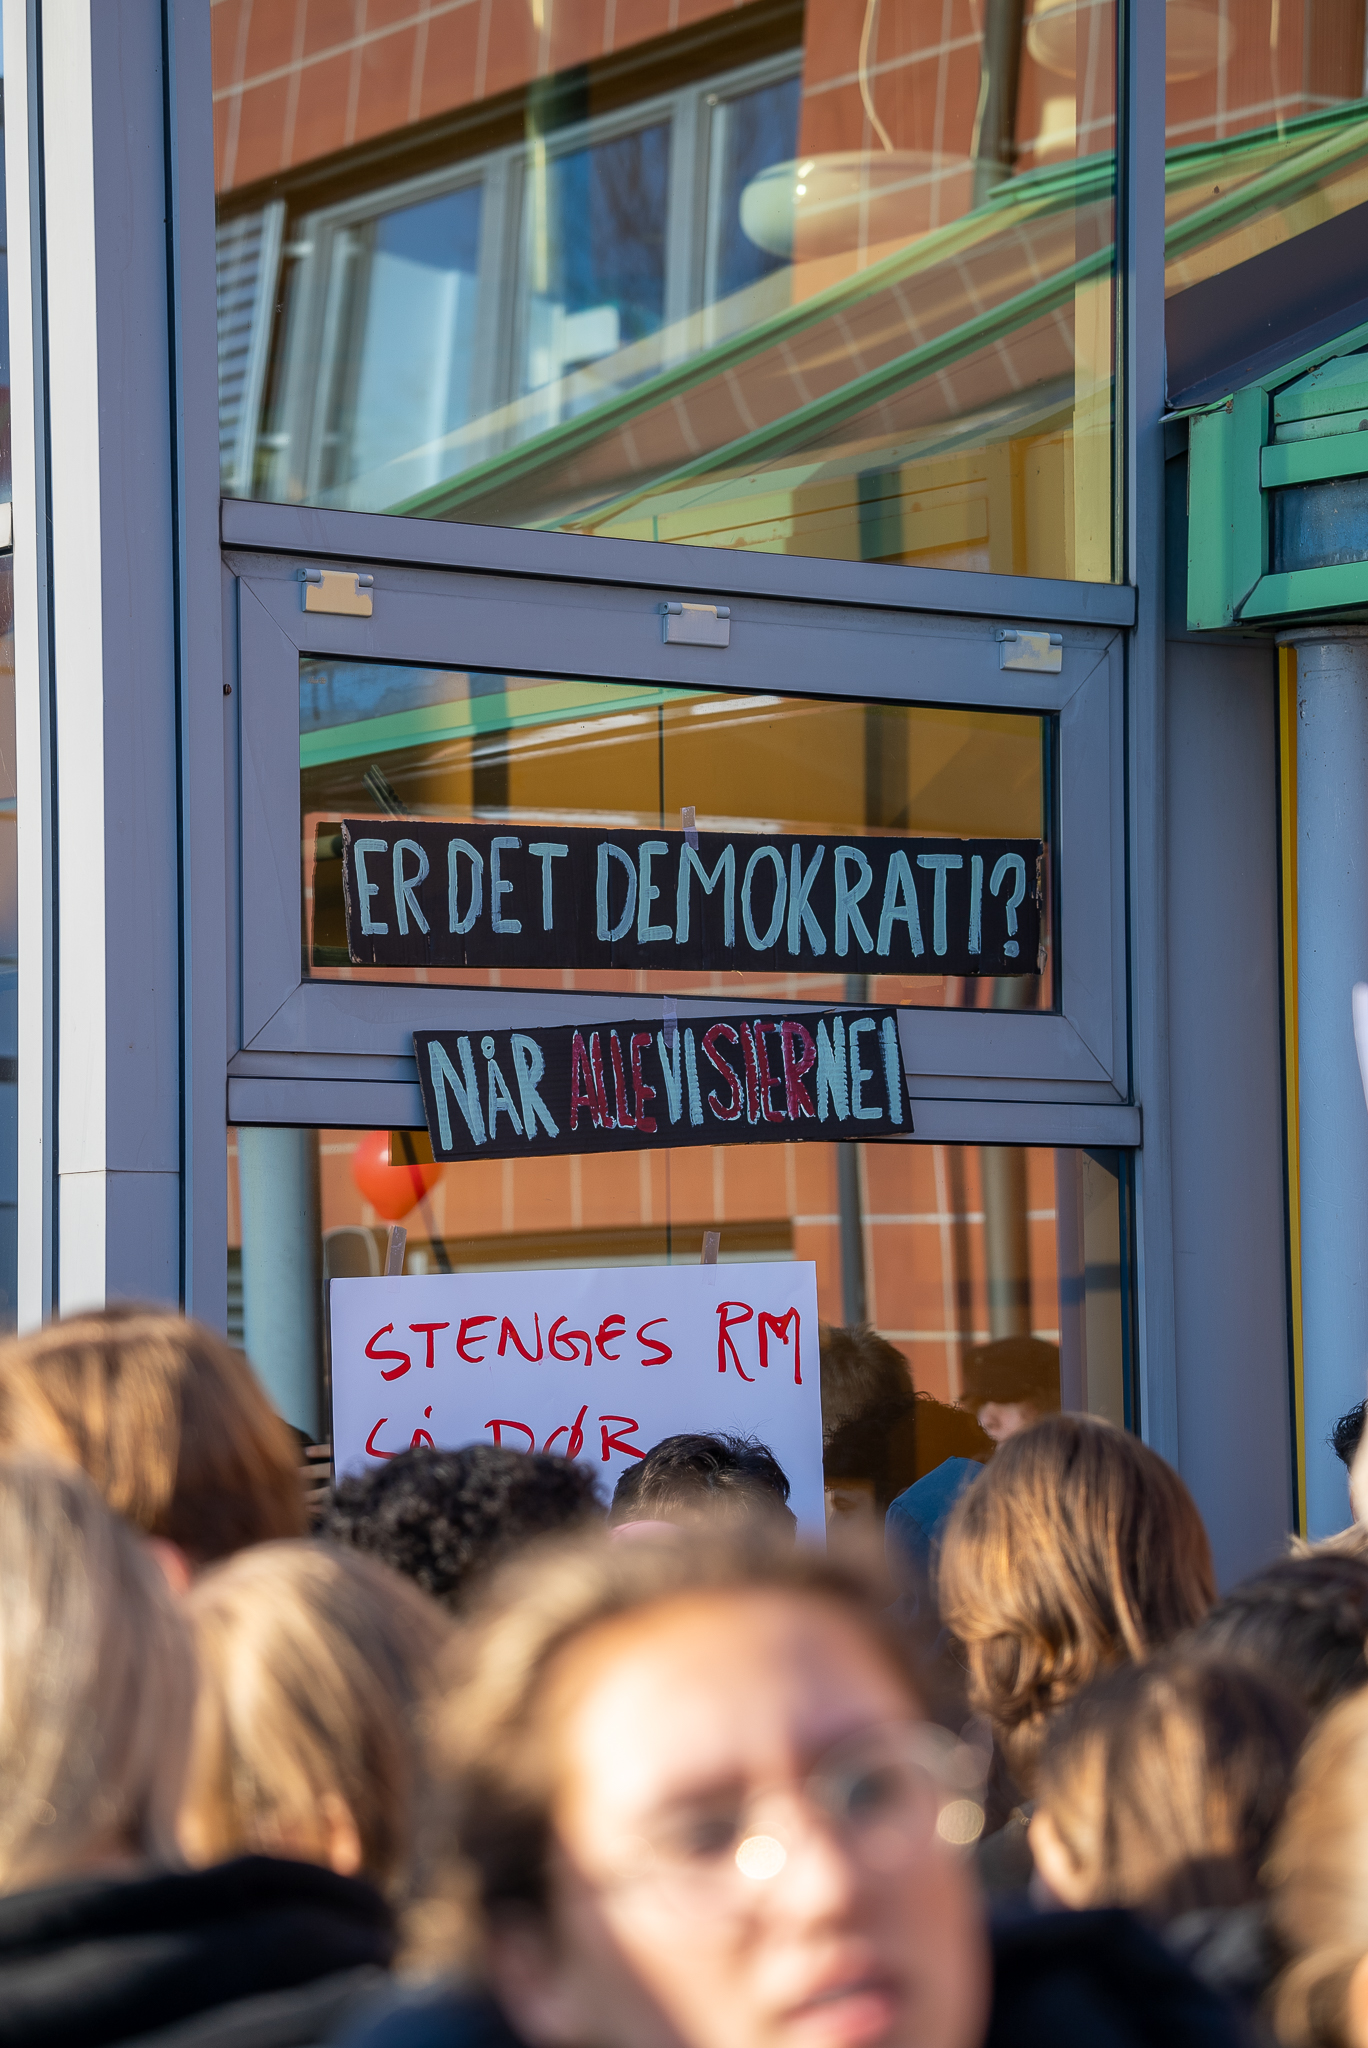 ER DET DEMOKRATI?
NÅR ALLE VI SIER NEI
STENGES RM
SÅ DØR